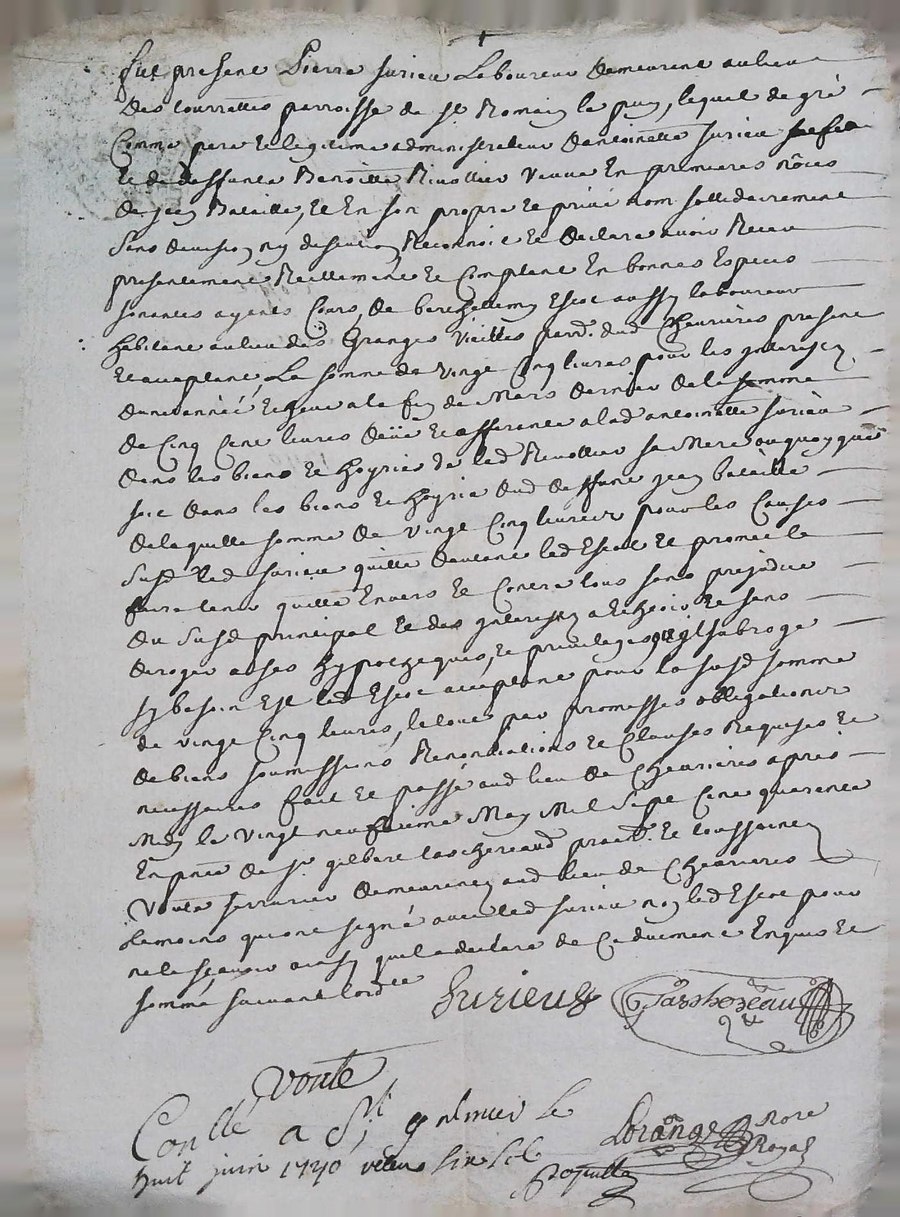 fut present Pierre Surieu Laboureur Demeurent aulieu
Des tourrettes parroisse de St Romain le puy, lequel de gré
Comme pere Et legitime administrateur Dantoinette Surieu sa fille
Et de deffunte Benoitte Rivollier Veuve En premieres nôces
De jean Bataille, Et En son propre Et privé nom sollidairement
sans division ny discution Reconnoit Et Declare avoir Receu
presentement Reellement Et Comptant En bonnes Especes
sonantes ayents Cours, De berthellemy Escot aussy laboureur
habitant aulieu des Granges Vieilles parr. dud Chevrieres present
Et acceptant, La somme de Vingt Cinq livres pour les interest
Dune année Echeue a la fin de Mars Dernier de la somme
De Cinq Cent livres Deüe Et afferante a lad antoinette Surieu
Dans les biens Et hoyries de lad Rivollier sa Mere ou quoy que
soit Dans les biens Et hoyrie dud deffunt jean bataille
De laquelle somme De Vingt Cinq livres pour les Causes
Susd led Surieu quitte Dautant led Escot Et promet le
faire tenir quitte Envers Et Contre tous sans prejudice
Du Susd principal Et des interest a Echeoir Et sans
Deroger a ses hypotheques, Et privileges
sy besoin Est led Escot acceptant pour la susd somme
de Vingt Cinq livres, le tout par promesses obligations
De biens soumissions Renonciations Et Clauses Requises Et
necessaires fait Et passé aud lieu de Chevrieres apres
Midy le Vingt neufvieme May Mil Sept Cent quarante
En pnce de Sr gilbert tarchereaud prat. Et toussaint
Voute serrurier Demeurent aud lieu de Chevrieres
temoins qui ont signé avec led Surieu non led Escot pour
ne le scavoir ainsy quil a declaré de Ce duement Enquis Et
sommé suivant lordce
Surieu
Voute
Conllé a St galmier le
huit juin 1740 recu six sols
Lorange Nore
Royal